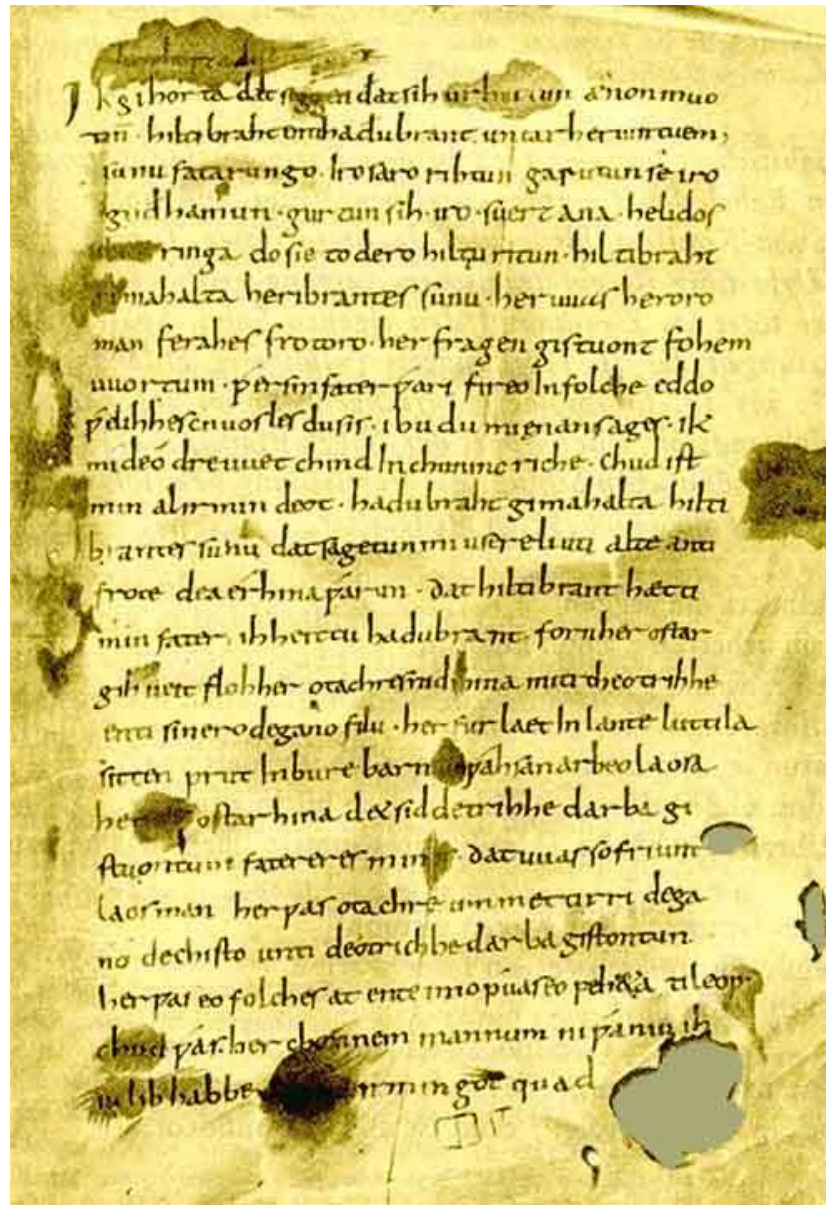 Ik gihorta ðat seggen ðat sih urhettun ænon muo
tin · hiltibraht enti haðubrant · untar heriun tuem,
sunu fatarungo · iro saro rihtun garutun se iro
guðhamun · gurtun sih · iro · suert ana · helidos
ubar ringa do sie to dero hiltu ritun · hiltibraht
gimahalta heribrantes sunu · her uuas heroro
man ferahes frotoro · her fragen gistuont fohem
uuortum · ƿer sin fater ƿari fireo In folche eddo
ƿelihhes cnuosles du sis · ibu du mi enan sages · ik
mi deo dre uuet chind In chuninc riche · chud ist
min al irmin deot · hadubraht gimahalta hilti
brantes sunu dat sagetun mi usere liuti alte anti
frote dea er hina ƿarun · dat hiltibrant hætti
min fater · ih heittu hadubrant · forn her ostar
gihueit floh her otachres nid hina miti theotrihhe
enti sinero degano filu · her furlaet In lante luttila
sitten prut In bure barn ƿahsan arbeo laosa
ostar hina det sid detrihhe darba gi
stuontum fatereres mines · dat uuas so friunt
laos man her ƿas otachre ummet tirri dega
no dechisto unti deotrichhe darba gistontun
her ƿas eo folches at ente imo ƿuas eo peheta ti leop ·
chud ƿas · her chonnem mannum ni ƿaniu ih
iu lib habbe irmingot quad